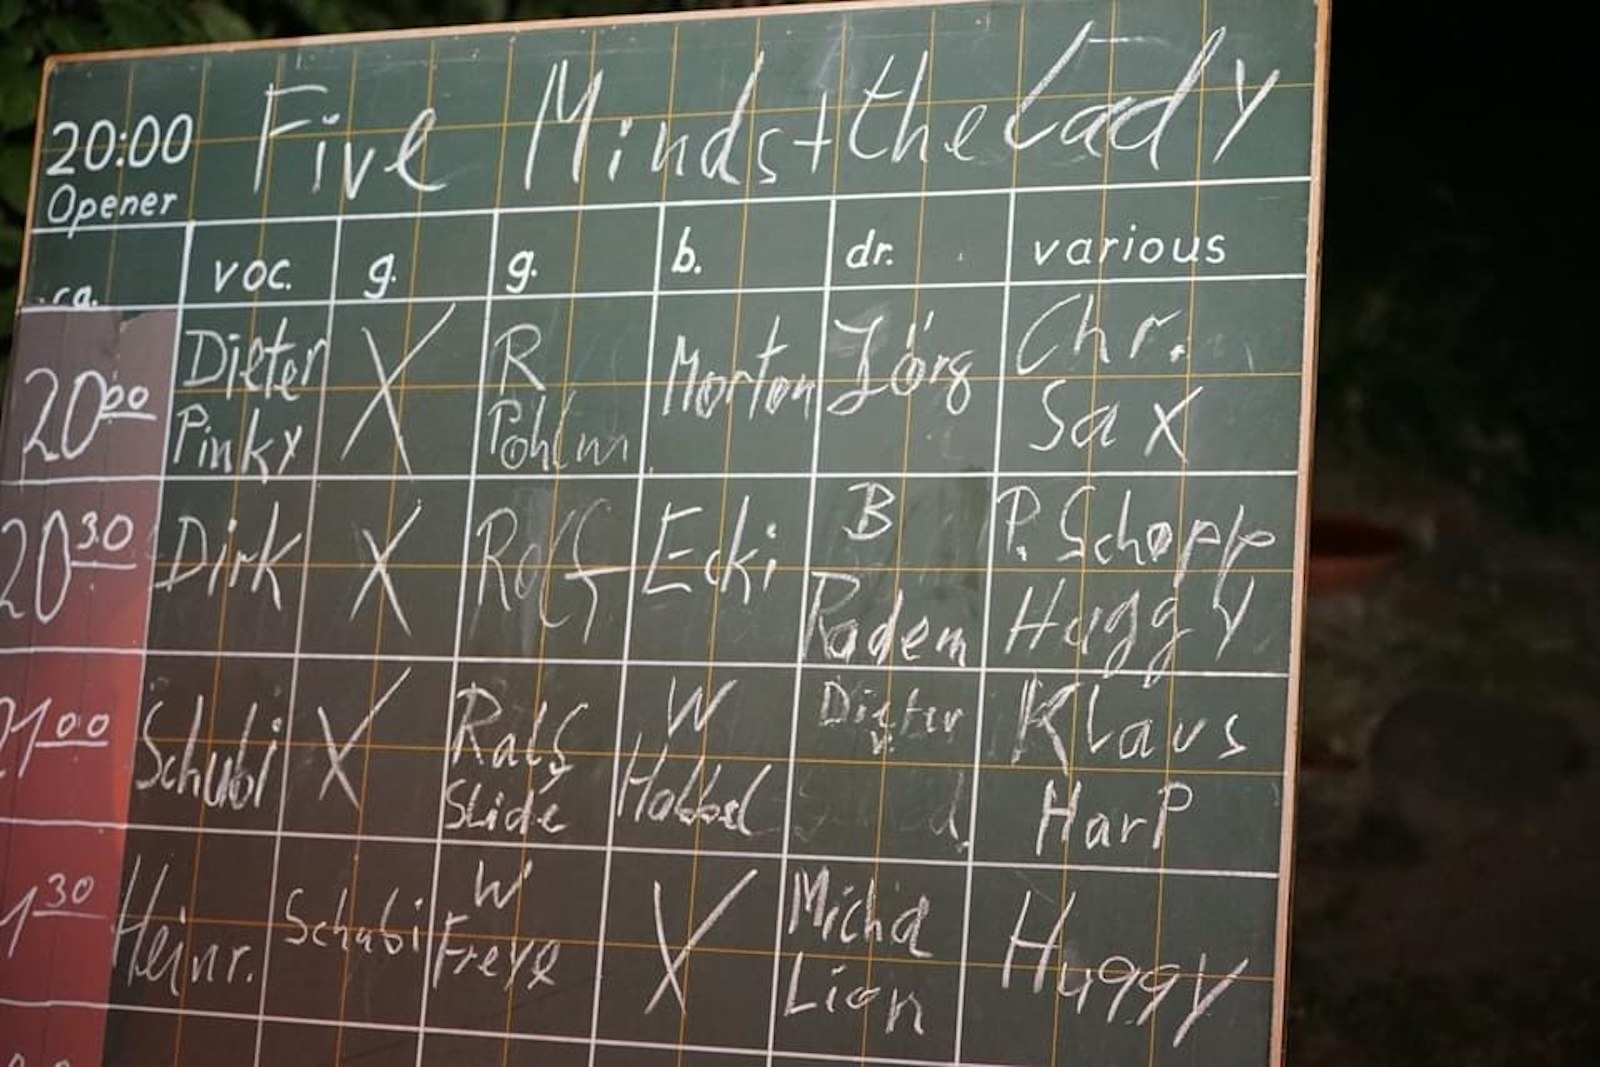 20:00 Five Minds + the Lady
Opener
ca. voc. g. g. b. dr. various
20 00 Dieter Pinky X R Pohlmn Morton Jörg Chr. Sax
20 30 Dirk X Rolf Ecki B Radem P. Schopp Huggy
21 00 Schubi X Ralf Slide W Dieter v. Klaus HarP
1 30 Heinr. Schubi W Freye X Micha Lion Huggy